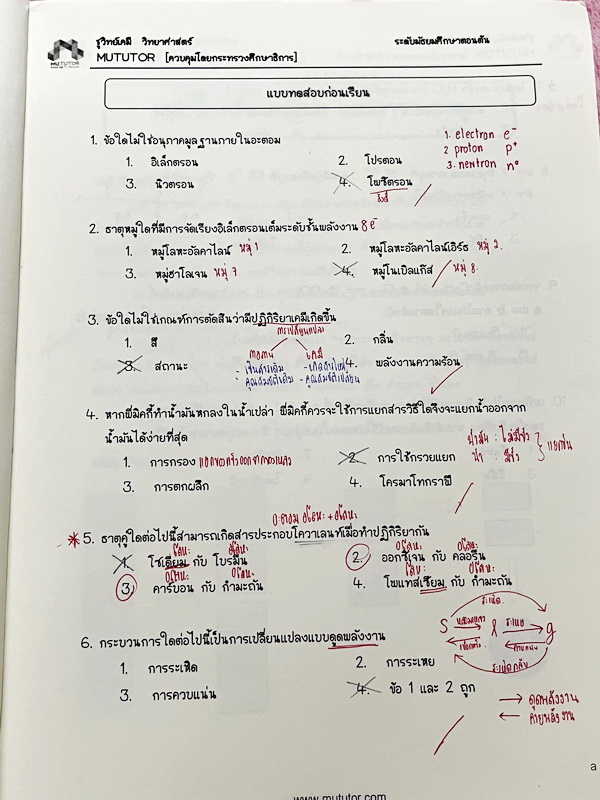 ชูวิทย์เคมี วิทยาศาสตร์ ระดับมัธยมศึกษาตอนต้น
MUTUTOR [ควบคุมโดยกระทรวงศึกษาธิการ]
MUTUTOR
แบบทดสอบก่อนเรียน
1. ข้อใดไม่ใช่อนุภาคมูลฐานภายในอะตอม
1. electron e⁻
2 proton p⁺
3. neutron n⁰
1. อิเล็กตรอน 2. โปรตอน
3. นิวตรอน 4. โพซิตรอน
รังสี
2. ธาตุหมู่ใดที่มีการจัดเรียงอิเล็กตรอนเต็มระดับชั้นพลังงาน 8e⁻
1. หมู่โลหะอัลคาไลน์ หมู่ 1 2. หมู่โลหะอัลคาไลน์เอิร์ธ หมู่ 2.
3. หมู่ฮาโลเจน หมู่ 7 4. หมู่โนเบิลแก๊ส หมู่ 8.
3. ข้อใดไม่ใช่เกณฑ์การตัดสินว่ามีปฏิกิริยาเคมีเกิดขึ้น
การเปลี่ยนแปลง
1. สี 2. กลิ่น
กายภาพ เคมี
3. สถานะ 4. พลังงานความร้อน
- เป็นสารเดิม - เกิดสารใหม่
- คุณสมบัติเดิม - คุณสมบัติเปลี่ยน
4. หากพี่มิคกี้ทำน้ำมันหกลงในน้ำเปล่า พี่มิคกี้ควรจะใช้การแยกสารวิธีใดจึงจะแยกน้ำออกจาก
น้ำมันได้ง่ายที่สุด
น้ำมัน : ไม่มีขั้ว
น้ำ มีขั้ว } แยกชั้น
1. การกรอง แยกของแข็งออกจากของเหลว 2. การใช้กรวยแยก
3. การตกผลึก 4. โครมาโทกราฟี
อะตอม อโลหะ + อโลหะ
*5. ธาตุคู่ใดต่อไปนี้สามารถเกิดสารประกอบโควาเลนท์เมื่อทำปฏิกิริยากัน
โลหะ อโลหะ อโลหะ อโลหะ
1. โซเดียม กับ โบรมีน 2. ออกซิเจน กับ คลอรีน
อโลหะ อโลหะ โลหะ อโลหะ
3. คาร์บอน กับ กำมะถัน 4. โพแทสเซียม กับ กำมะถัน
6. กระบวนการใดต่อไปนี้เป็นการเปลี่ยนแปลงแบบดูดพลังงาน
ระเหิด
s หลอมเหลว l ระเหย g
แข็งตัว ควบแน่น
ระเหิดกลับ
1. การระเหิด 2. การระเหย
3. การควบแน่น 4. ข้อ 1 และ 2 ถูก
→ ดูดพลังงาน
← คายพลังงาน
a
www.mututor.com